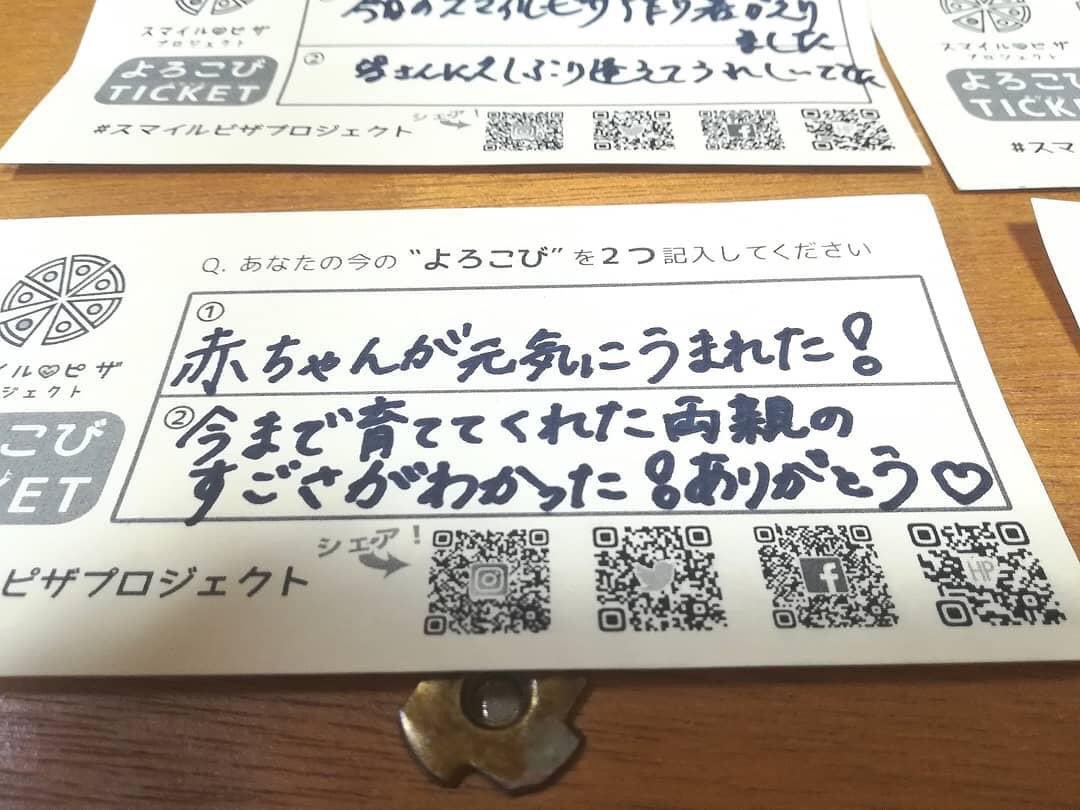 スマイル ピザ
プロジェクト
よろこび
TICKET
今日のスマイルピザ
ました
②
皆さんに久しぶり逢えてうれしーです
#スマイルピザプロジェクト
シェア!
スマイル ピザ
プロジェクト
よろこ
TICK
#スマ
Q. あなたの今の “よろこび” を2つ記入してください
①
赤ちゃんが元気にうまれた!
②
今まで育ててくれた両親の
すごさがわかった!ありがとう♡
イル ピザ
ジェクト
こび
ET
ピザプロジェクト
シェア!
HP